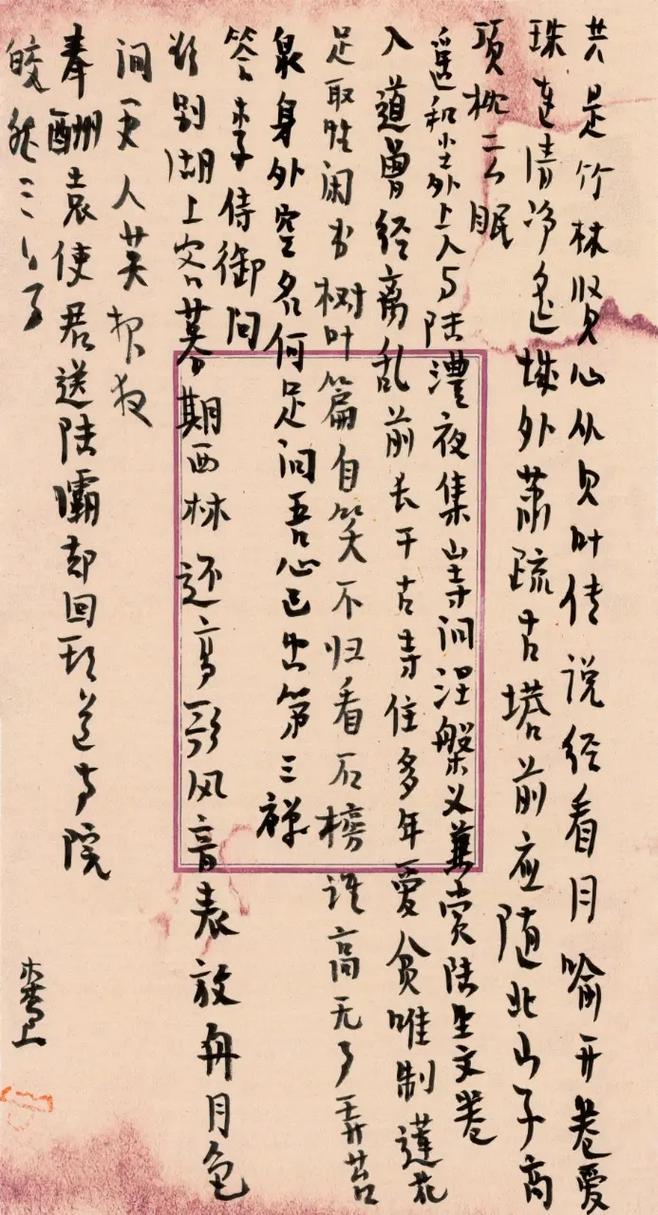 共是竹林贤心从贝叶传说经看月喻开卷爱
珠连清净遥城外萧疏古塔前应随北山子高
顶枕云眠
遥和尘外上人与陆澧夜集山寺问涅槃义兼赏陆生文卷
入道曾经离乱前长干古寺住多年爱贫唯制莲花
足取性闲书树叶篇自笑不归看石榜谁高无事弄苔
泉身外空名何足问吾心已出第三禅
答李侍御问
欲别湖上客暮期西林还高歌风音表放舟月色
间更人
奉酬袁使君送陆灞却回期道寺院
皎然三